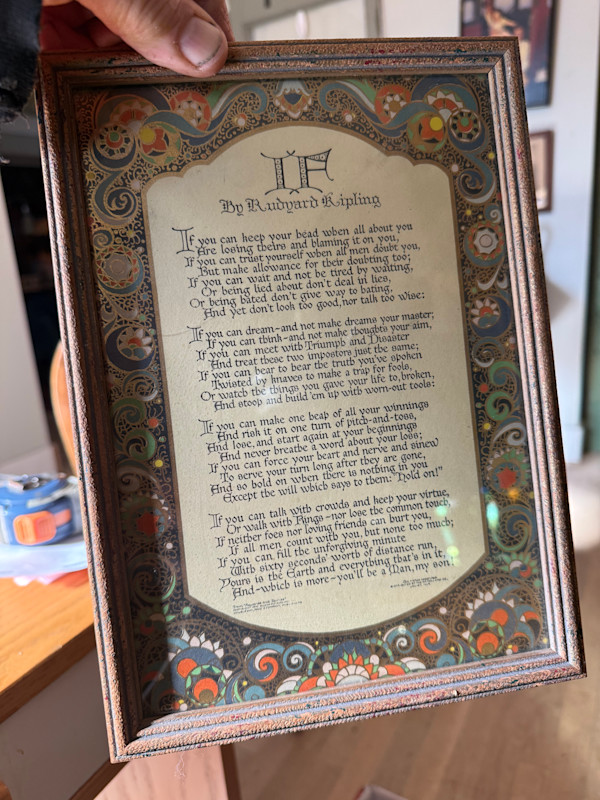 IF
By Rudyard Kipling
If you can keep your head when all about you
Are losing theirs and blaming it on you,
If you can trust yourself when all men doubt you,
But make allowance for their doubting too;
If you can wait and not be tired by waiting,
Or being lied about don't deal in lies,
Or being hated don't give way to hating,
And yet don't look too good, nor talk too wise:
If you can dream-and not make dreams your master;
If you can think-and not make thoughts your aim,
If you can meet with Triumph and Disaster
And treat those two impostors just the same;
If you can bear to hear the truth you've spoken
Twisted by knaves to make a trap for fools,
Or watch the things you gave your life to, broken,
And stoop and build 'em up with worn-out tools:
If you can make one heap of all your winnings
And risk it on one turn of pitch-and-toss,
And lose, and start again at your beginnings
And never breathe a word about your loss:
If you can force your heart and nerve and sinew
To serve your turn long after they are gone,
And so hold on when there is nothing in you
Except the will which says to them: "Hold on!"
If you can talk with crowds and keep your virtue,
Or walk with Kings-nor lose the common touch,
If neither foes nor loving friends can hurt you,
If all men count with you, but none too much;
If you can fill the unforgiving minute
With sixty seconds' worth of distance run,
Yours is the Earth and everything that's in it,
And-which is more-you'll be a Man, my son!